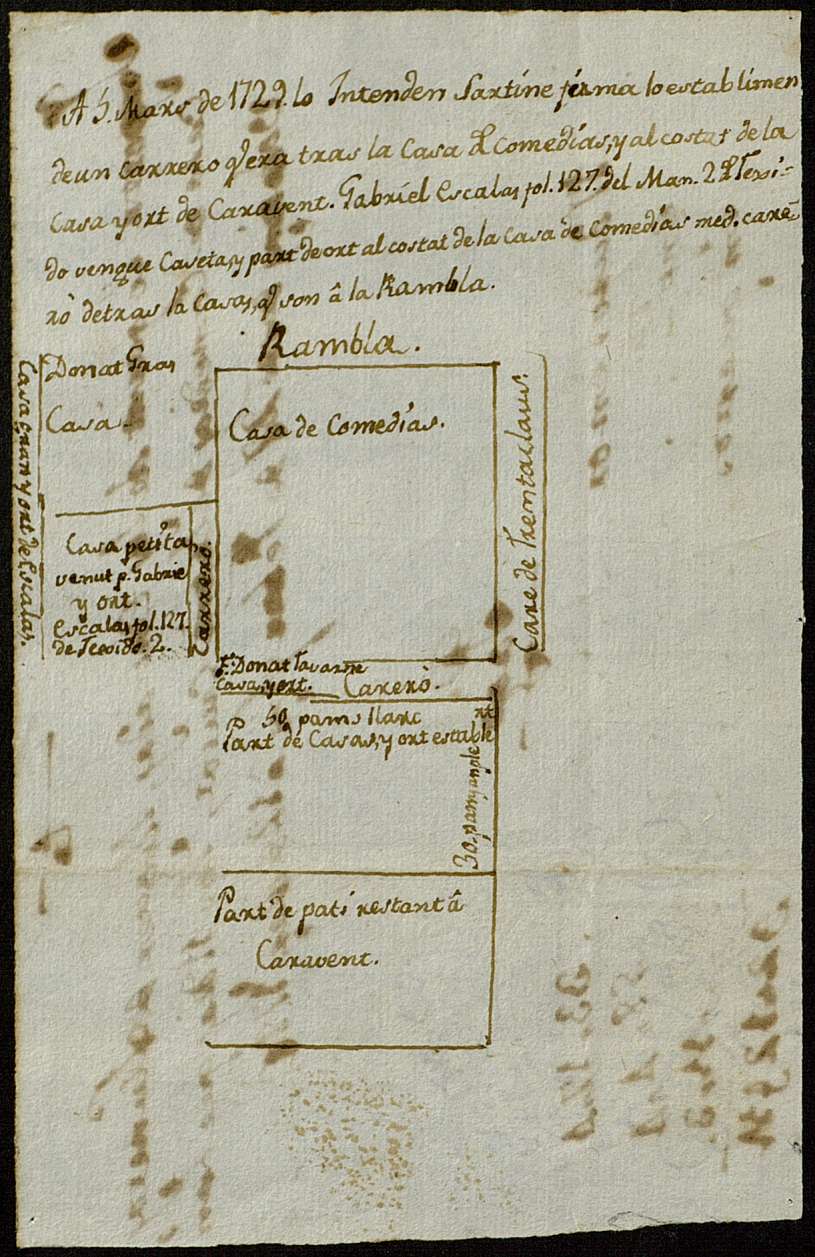 A 5. Mars de 1729. lo Intenden Sartine firma lo establimen
de un Carrero q̃ era tras la Casa de Comedias, y al costat de la
Casa y ort de Caravent. Gabriel Escalas fol. 127. del Man. 2. de Texi-
do venque Casetas, y part de ort al costat de la Casa de Comedias med. carre-
rò detras la Casas, q̃ son â la Rambla.
Rambla.
Donat Gras
Casa.
Casa gran y ort de Escalas.
Casa de Comedias.
Carre de Trentaclaus.
Casa petita
venut p. Gabrie
y ort.
Escalas fol. 127.
de Texido. 2.
Carrero.
Donat
Casa, y ort.
Carerò.
50 pams llarc
Part de Casas, y ort establ
30. pams ample
Part de pati restant â
Caravent.